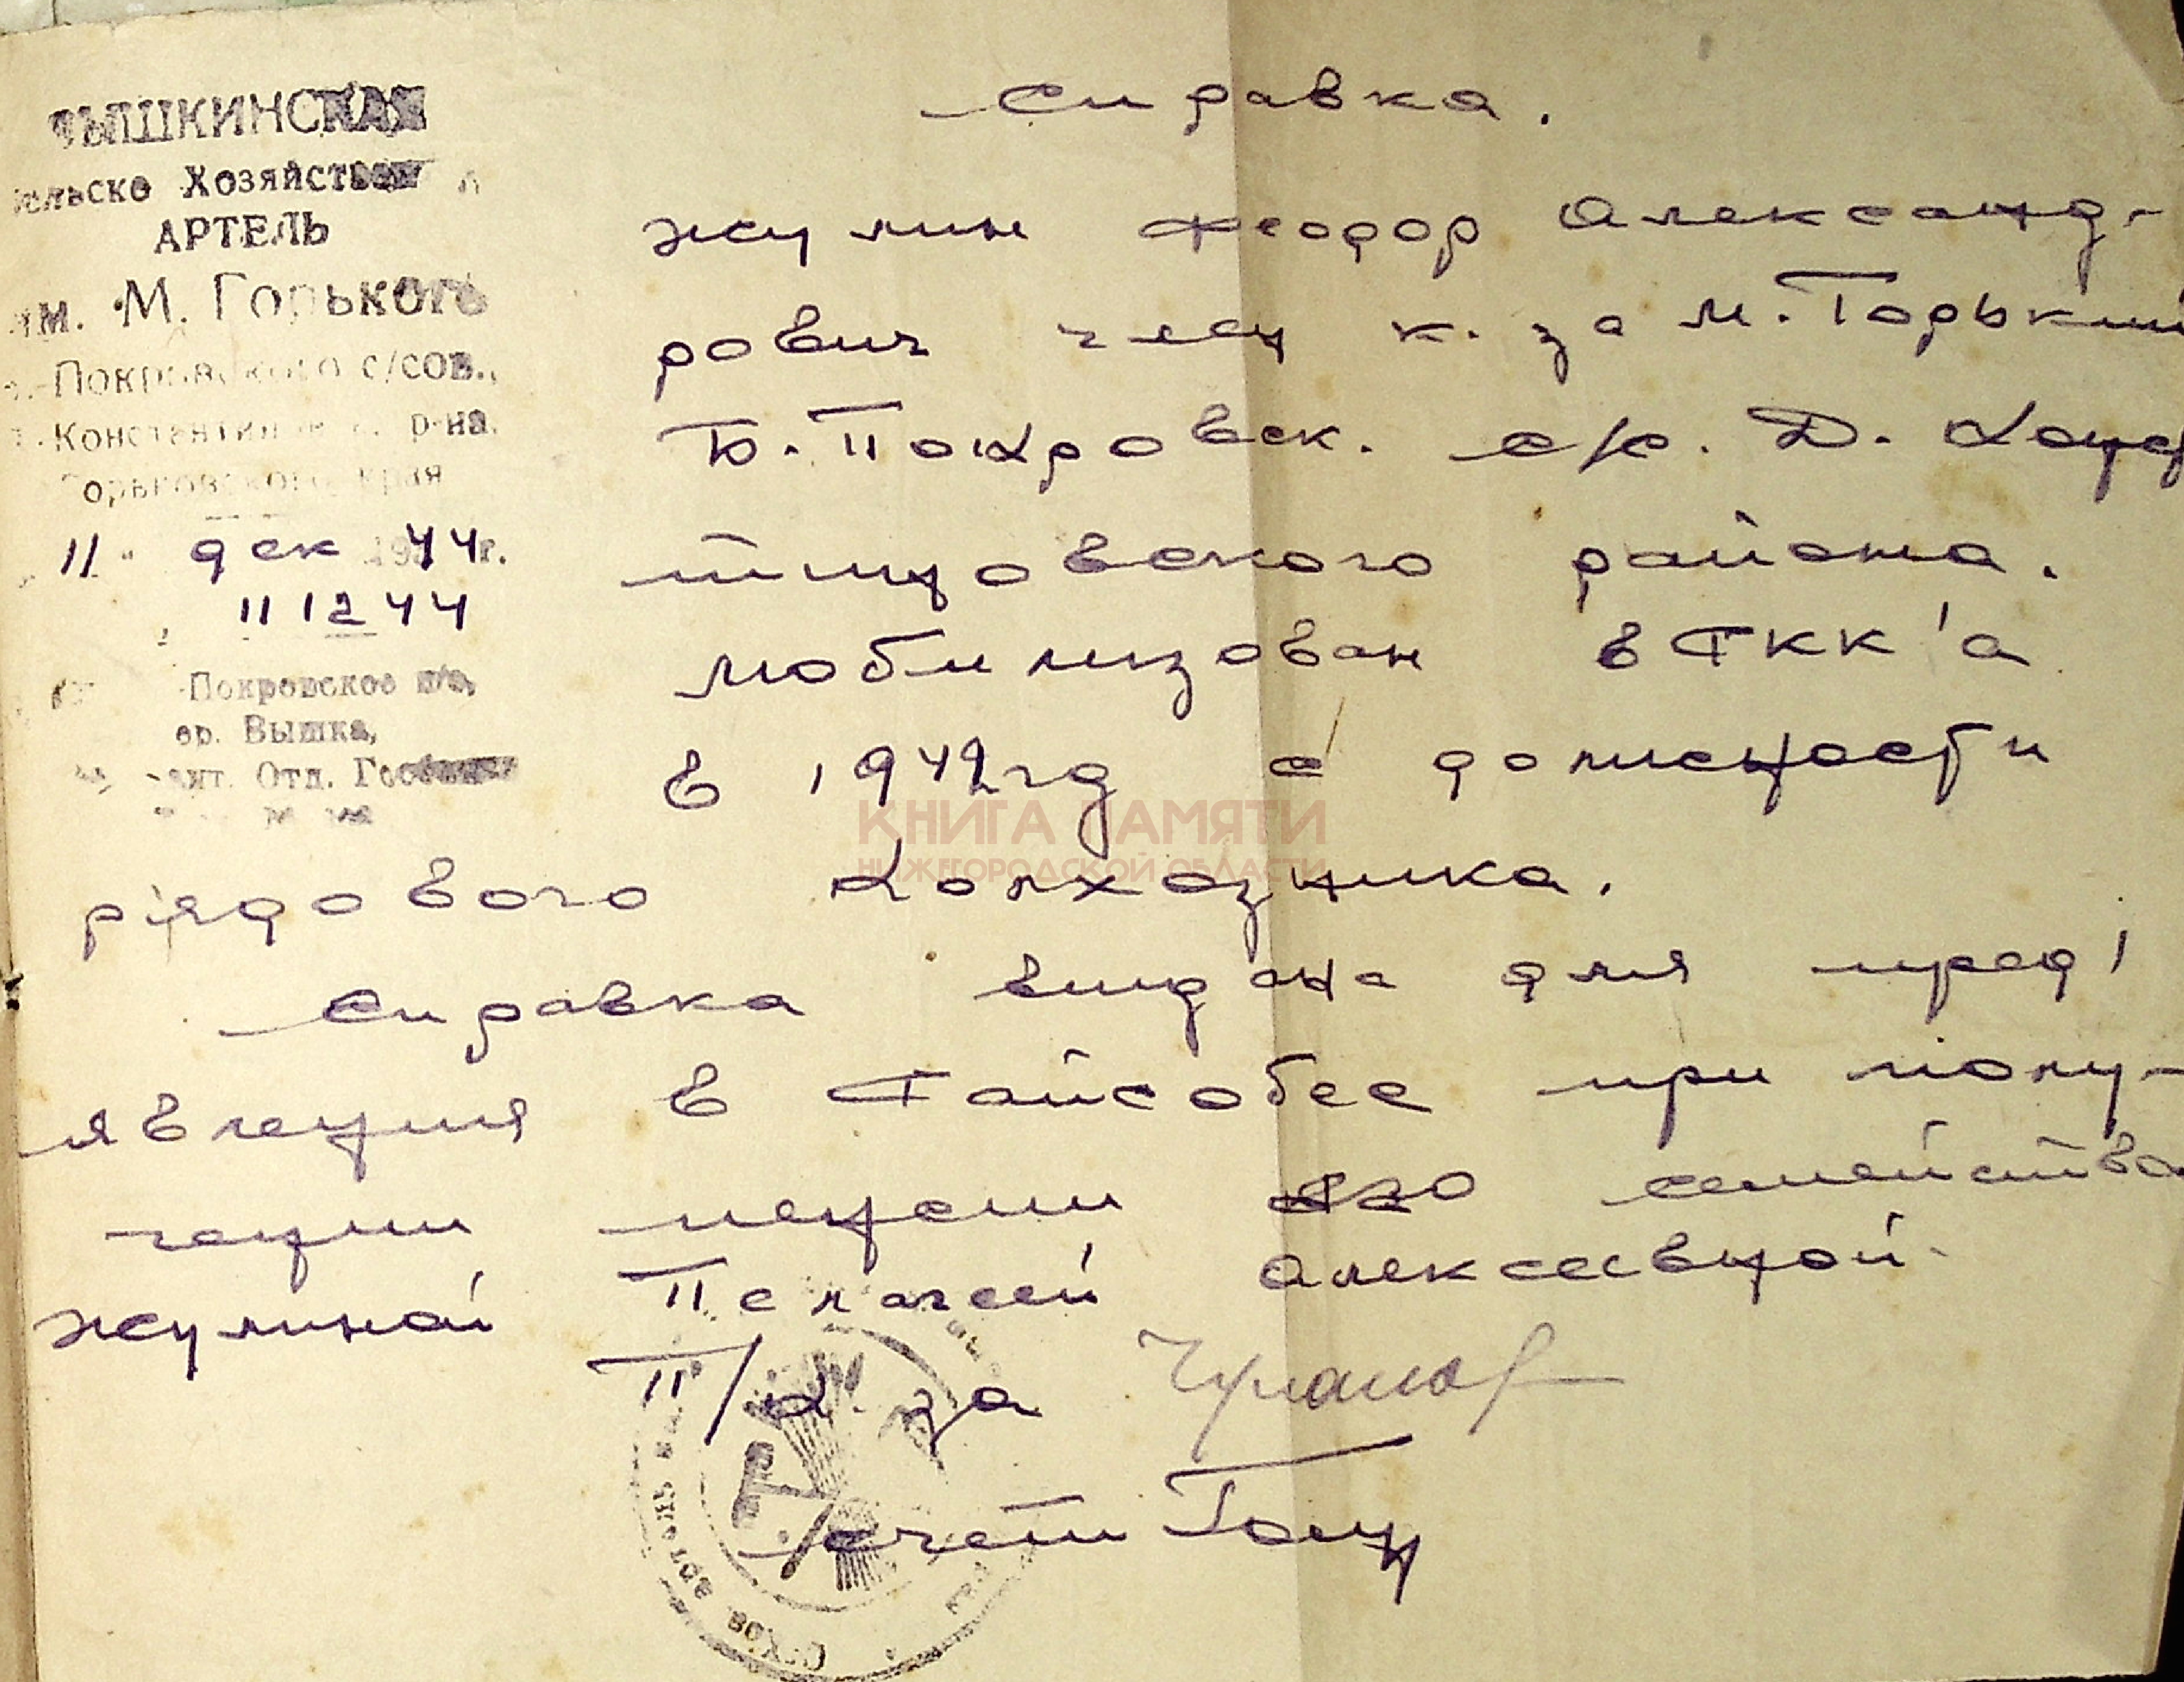 ВЫШКИНСКАЯ
Сельско Хозяйствен
АРТЕЛЬ
им. М. Горького
Покровского с/сов.,
Д.-Константинов. р-на.
Горьковского края
11 " дек 1944 г.
11 12 44
Покровское п/о,
дер. Вышка,
Отд. Госбанка
Справка.
Жулин Феодор Александ-
рович член к-за М. Горький
Б. Покровск. с/с. Д. Конс
тинтовского района.
мобилизован в РКК'а
в 1942 год с должности
рядового колхозника.
Справка выдана для пред'
явления в Райсобес при полу-
чении пенсии его семейства
Жулиной Пелагеей Алексеевной.
П/К-за
счет
С-Хоз артель
КНИГА ПАМЯТИ
НИЖЕГОРОДСКОЙ ОБЛАСТИ